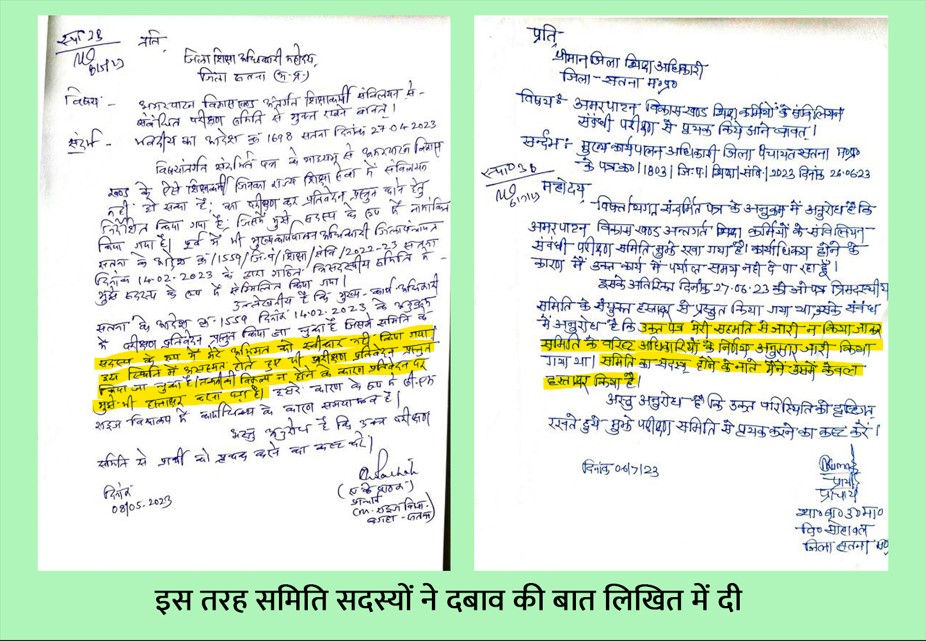 प्रति,
जिला शिक्षा अधिकारी महोदय,
जिला सतना (म.प्र.)
विषय - अमरपाटन विकासखण्ड अंतर्गत शिक्षाकर्मी संविलियन से
संबंधित परीक्षण समिति से मुक्त रखने बावत्।
संदर्भ - भवदीय का आदेश क्र 1698 सतना दिनांक 27.04.2023
विषयांतर्गत संदर्भित पत्र के माध्यम से अमरपाटन विकास
2003 के ऐसे शिक्षाकर्मी जिनका राज्य शिक्षा सेवा में संविलियन
नहीं हो सका है; का परीक्षण कर प्रतिवेदन प्रस्तुत करने हेतु
निर्देशित किया गया है; जिसमें मुझे सदस्य के रूप में नामांकित
किया गया है। पूर्व में भी मुख्यकार्यपालन अधिकारी जिला पंचायत
सतना के आदेश क्र/1559/जि.पं/शिक्षा/संवि/2022-23 सतना
दिनांक 14.02.2023 के द्वारा गठित त्रिसदस्यीय समिति में
मुझे सदस्य के रूप में सम्मिलित किया गया।
उल्लेखनीय है कि मुख्य कार्य अधिकारी
सतना के आदेश क्र. 1559 दिनांक 14.02.2023 के अनुक्रम
में परीक्षण प्रतिवेदन प्रस्तुत किया जा चुका है जिसमें समिति के
सदस्य के रूप में मेरे अभिमत को स्वीकार नहीं किया गया।
इस स्थिति में असहमत होते हुए भी परीक्षण प्रतिवेदन प्रस्तुत
किया जा चुका है। विकल्प न होने के कारण प्रतिवेदन पर
मुझे भी हस्ताक्षर करना पड़ा है। दूसरे कारण के रूप में
राइज विद्यालय में कार्याधिक्य के कारण समयाभाव है।
अस्तु अनुरोध है कि उक्त परीक्षण
समिति से प्रार्थी को पृथक करने का कष्ट करें।
दिनांक
08/05.2023
प्राचार्य
प्रति,
श्रीमान जिला शिक्षा अधिकारी
जिला - सतना म०प्र०
विषयः- अमरपाटन विकास खण्ड शिक्षा कर्मियों के संविलियन
संबंधी परीक्षण से पृथक किये जाने बावत्।
सन्दर्भः- मुख्य कार्यपालन अधिकारी जिला पंचायत सतना म०प्र०
के पत्र क्र०/1803/जि.पं/शिक्षा/संवि/2023 दिनांक 26.06.23
महोदय,
- विषयान्तर्गत संदर्भित पत्र के अनुक्रम में अनुरोध है कि
अमरपाटन विकास खण्ड अन्तर्गत शिक्षा कर्मियों के संविलियन
संबंधी परीक्षण समिति मुझे रखा गया है। कार्याधिक्य होने के
कारण मैं उक्त कार्य में पर्याप्त समय नहीं दे पा रहा हूँ।
इसके अतिरिक्त दिनांक 27.06.23 को जो पत्र त्रिसदस्यीय
समिति के संयुक्त हस्ताक्षर से प्रस्तुत किया गया था, उसके संबंध
में अनुरोध है कि उक्त पत्र मेरी सहमति से जारी न किया जाकर
समिति के वरिष्ठ अधिकारियों के निर्णय अनुसार जारी किया
गया था। समिति का सदस्य होने के नाते मैंने उसमें केवल
हस्ताक्षर किया है।
अस्तु अनुरोध है कि उक्त परिस्थिति को दृष्टिगत
रखते हुये मुझे परीक्षण समिति से पृथक करने का कष्ट करें।
दिनांक 06/7/23
प्रार्थी
प्राचार्य
जिला सतना म०प्र०
इस तरह समिति सदस्यों ने दबाव की बात लिखित में दी